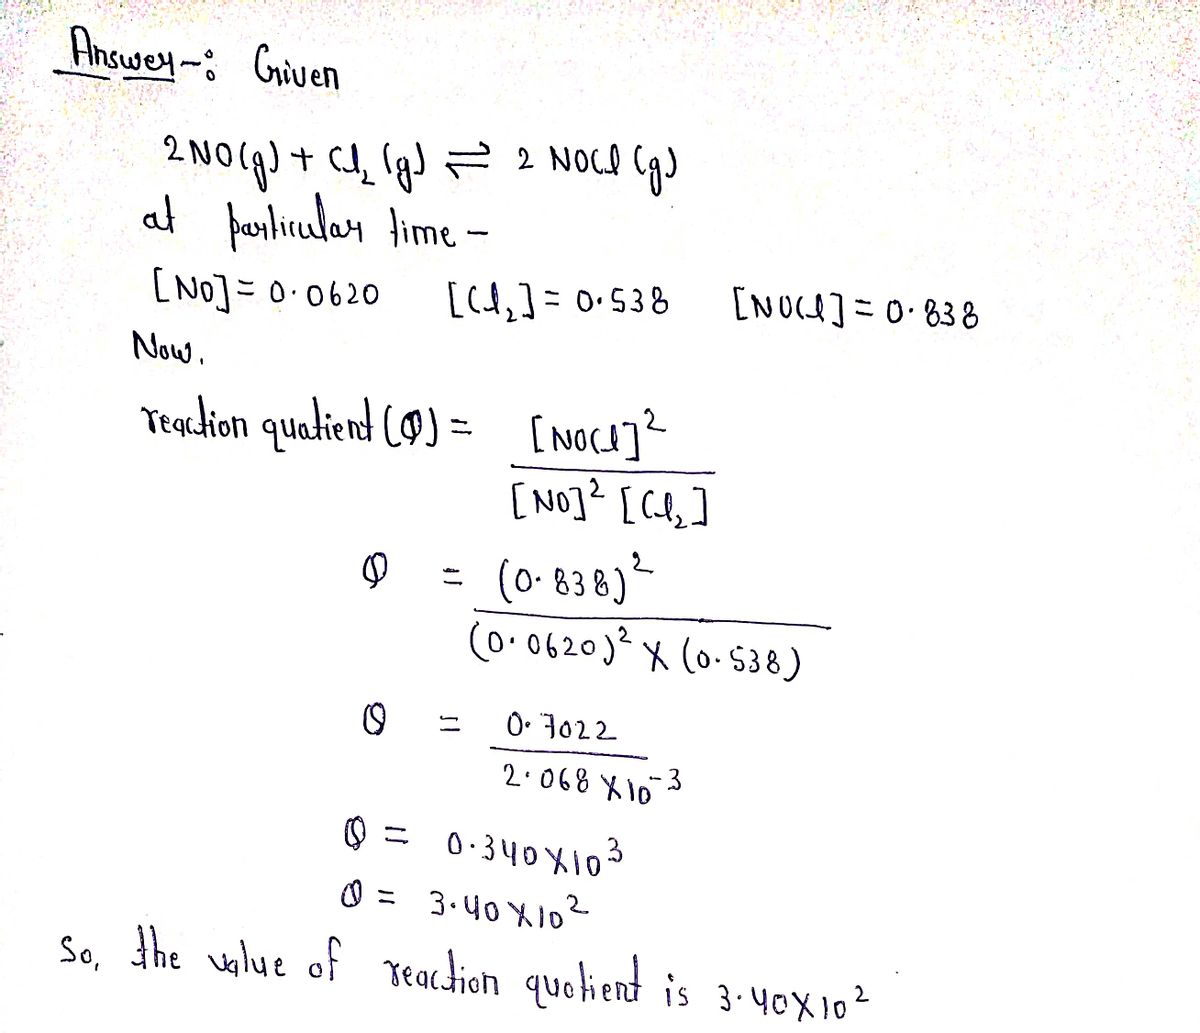 Answer-: Given
2NO(g) + Cl₂ (g) ⇌ 2 NOCl (g)
at particular time -
[NO] = 0.0620 [Cl₂] = 0.538 [NOCl] = 0.838
Now,
reaction quatient (Q) = [NOCl]²
[NO]² [Cl₂]
Q = (0.838)²
(0.0620)² X (0.538)
Q = 0.7022
2.068 X10⁻³
Q = 0.340X10³
Q = 3.40X10²
So, the value of reaction quotient is 3.40X10²